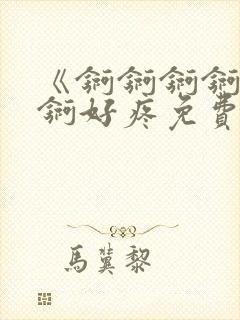 《锕锕锕锕
锕好疼免費
馬冀黎